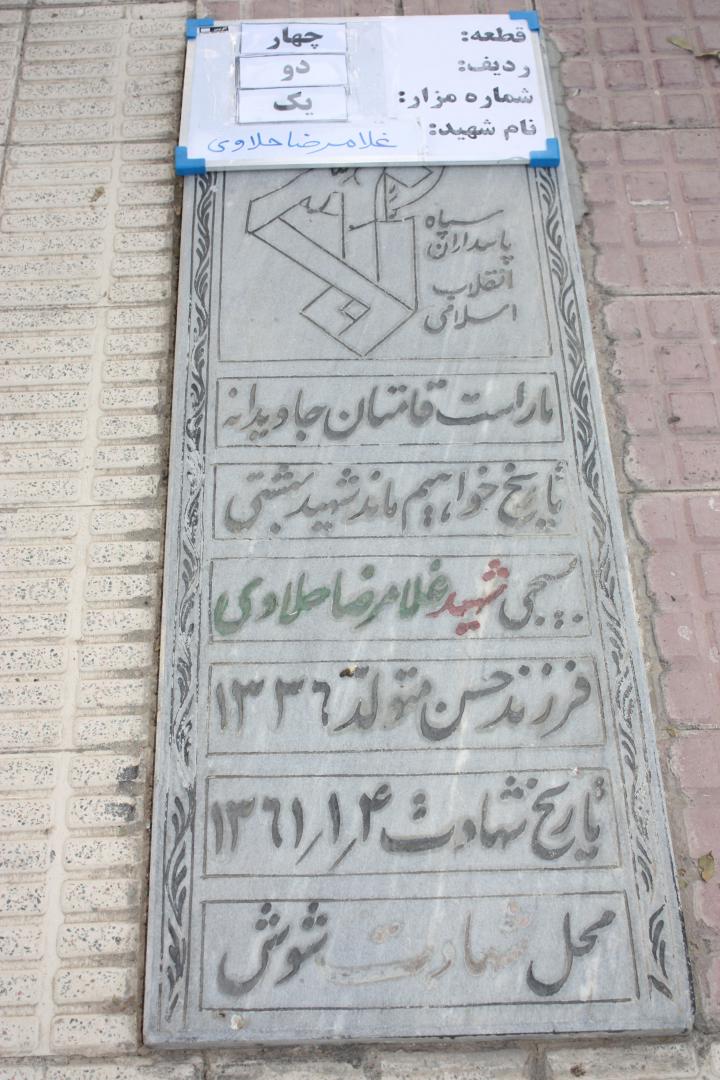 قطعه: چهار
ردیف: دو
شماره مزار: یک
نام شهید: غلامرضا حلاوی
سپاه
پاسداران
انقلاب
اسلامی
ما راست قامتان جاودانه
تاریخ خواهیم ماند شهید بهشتی
بسیجی شهید غلامرضا حلاوی
فرزند حسن متولد ۱۳۳۶
تاریخ شهادت ۴/۱/۱۳۶۱
محل شهادت شوش